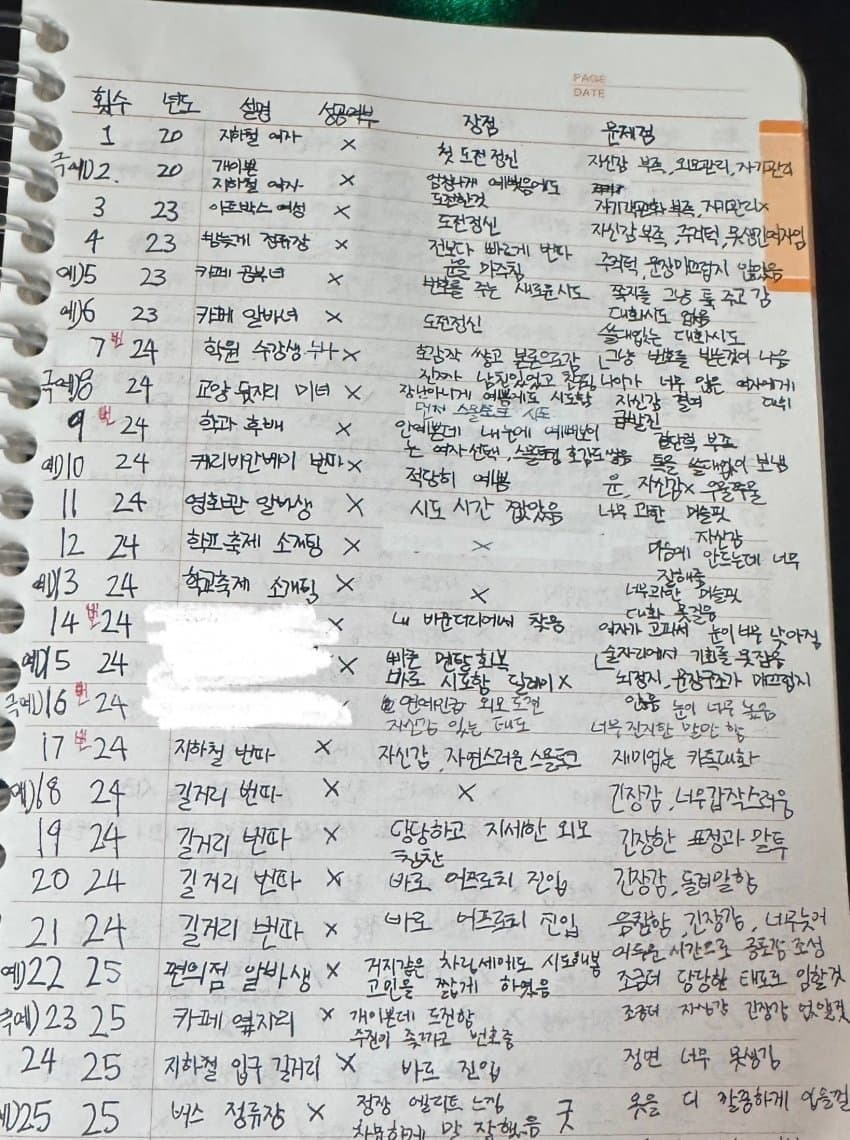 PAGE
DATE
횟수 년도 설명 성공여부 장점 문제점
1 20 지하철 여자 × 첫 도전정신 자신감 부족, 외모관리, 자기관리
극예)2. 20 개이쁜 지하철 여자 × 엄청나게 예뻤음에도 도전한것
3 23 여성 × 도전정신 자기객관화 부족, 자기관리×
4 23 밤늦게 정류장 × 전보다 빠르게 번따 자신감 부족, 주저턱, 못생긴여자임
예)5 23 카페 공부녀 × 운을 마주침 주저턱, 문장매끄럽지 않았음
예)6 23 카페 알바녀 × 번호를 주는 새로운시도 쪽지를 그냥 툭 주고 감
도전정신 대화시도 없음
7번 24 학원 수강생 누나 × 호감작 쌓고 본론으로감 쓸데없는 대화시도
그냥 번호를 받는것이 나음
극예)8 24 교양 뒷자리 미녀 × 장난아니게 예쁨에도 시도함 나이가 너무 많은 여자에게 대쉬
자신감 결여
9번 24 학과 후배 × 먼저 스몰토크 시도 급발진
안예쁜데 내눈에 예뻐보이는 여자선택, 스몰토킹 호감도쌓음 결단력 부족
예)10 24 캐리비안베이 번따 × 적당히 예쁨 톡을 쓸데없이 보냄
운, 자신감× 우물쭈물
11 24 영화관 알바생 × 시도 시간 짧았음 너무 과한 머슬핏
12 24 학교축제 소개팅 × × 자신감
마음에 안드는데 너무 잘해줌
예)13 24 학교축제 소개팅 × × 너무과한 머슬핏
대화 못걸음
14번 24 × 내 바운더리에서 찾음 여자가 고파서 눈이 너무 낮아짐
예)15 24 × 빠른 멘탈회복 술자리에서 기회를 못잡음
바로 시도함 딜레이× 뇌정지, 문장구조가 매끄럽지 않음
극예)16번 24 연예인급 외모 도전 눈이 너무 높음
자신감 있는 태도 너무진지한 발언 함
17번 24 지하철 번따 × 자신감, 자연스러운 스몰토크 재미없는 카톡대화
예)18 24 길거리 번따 × × 긴장감, 너무갑작스러움
19 24 길거리 번따 × 당당하고 자세한 외모 칭찬 긴장한 표정과 말투
20 24 길거리 번따 × 바로 어프로치 진입 긴장감, 돌려말함
21 24 길거리 번따 × 바로 어프로치 진입 음침함, 긴장감, 너무늦어
어두운 시간으로 공포감 조성
예)22 25 편의점 알바생 × 거지같은 차림새에도 시도해봄 조금더 당당한 태도로 임할것
고민을 짧게 하였음
극예)23 25 카페 옆자리 × 개이쁜데 도전함 조금더 자신감 긴장감 없앨것
주먼이 쪽까고 번호줌
24 25 지하철 입구 길거리 × 바로 진입 정면 너무 못생김
예)25 25 버스 정류장 × 정장 엘리트 느낌 굿 옷을 더 깔끔하게 입을걸
차분하게 말 잘했음